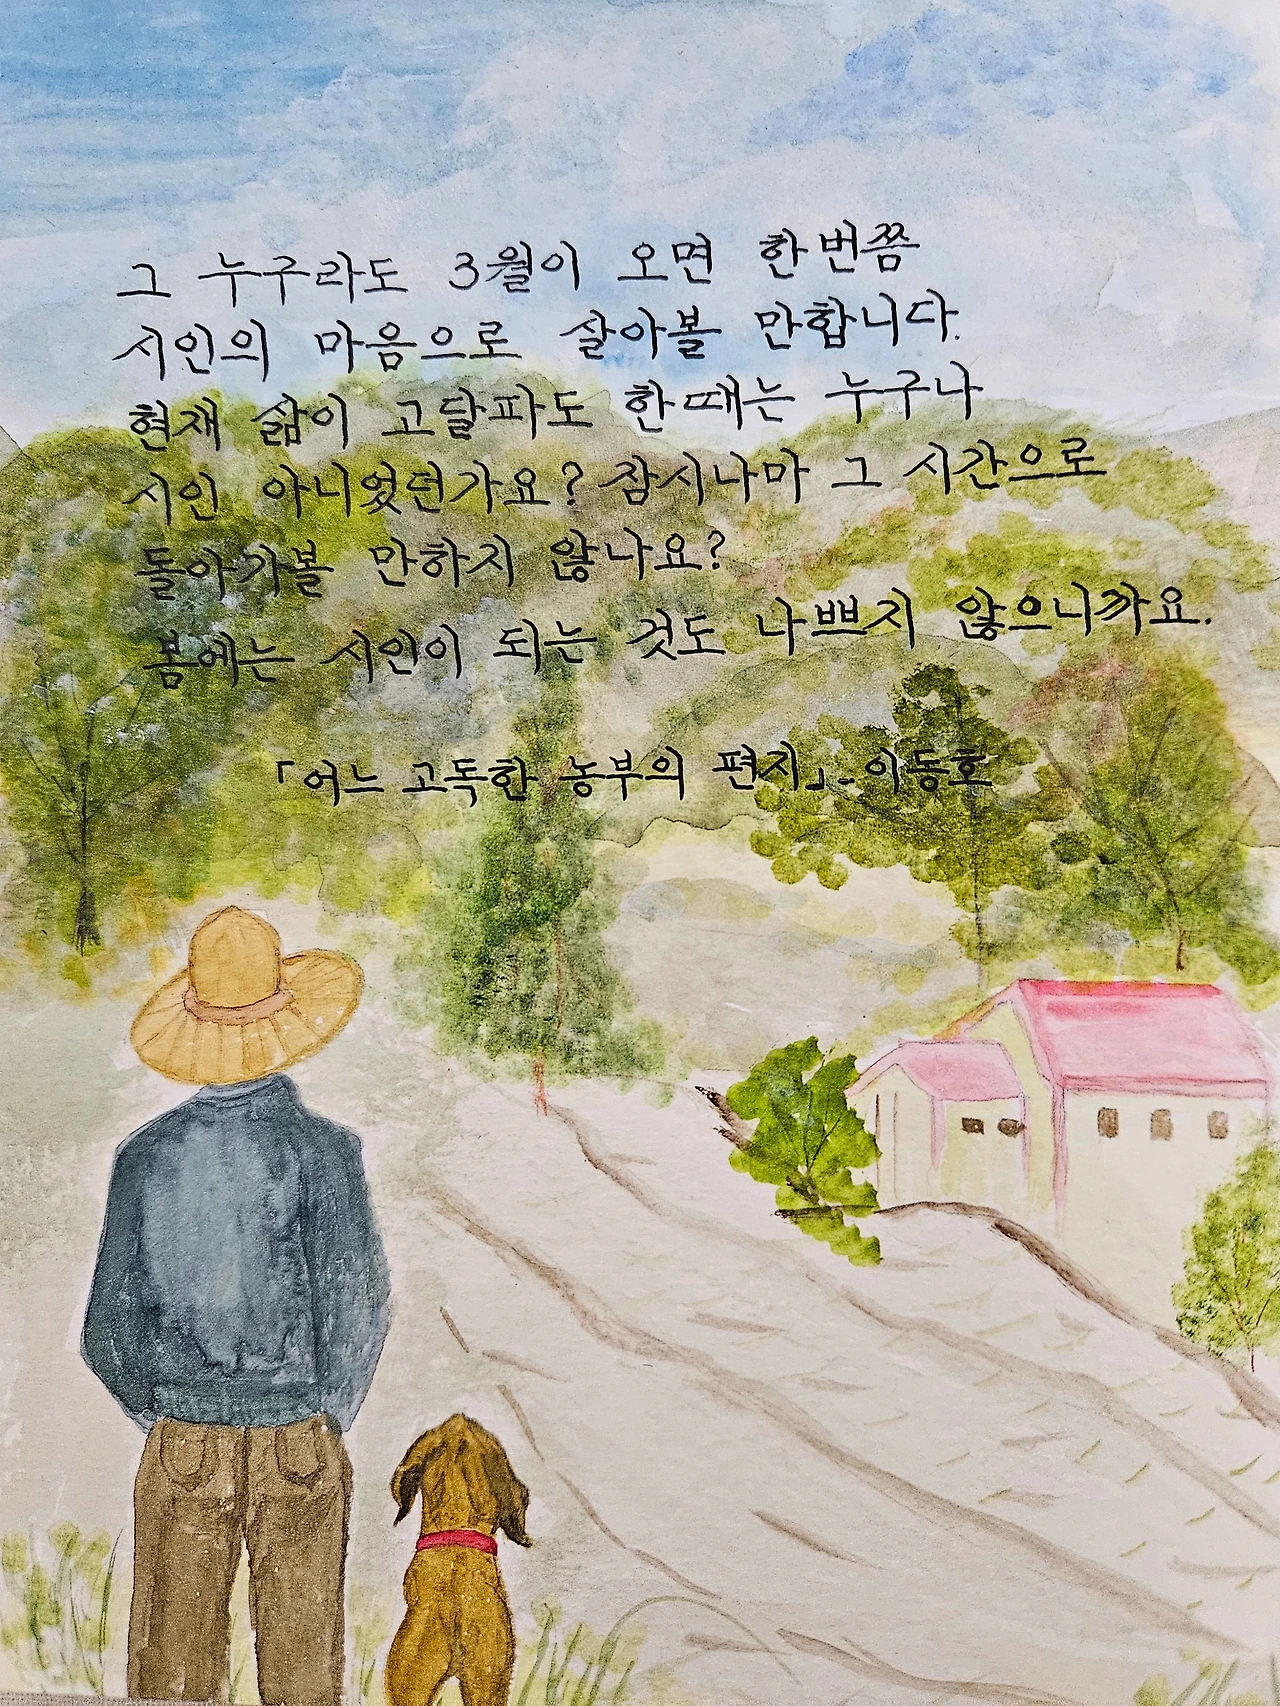 그 누구라도 3월이 오면 한번쯤
시인의 마음으로 살아볼 만합니다.
현재 삶이 고달파도 한때는 누구나
시인 아니었던가요? 잠시나마 그 시간으로
돌아가볼 만하지 않나요?
봄에는 시인이 되는 것도 나쁘지 않으니까요.
「어느 고독한 농부의 편지」- 이동호